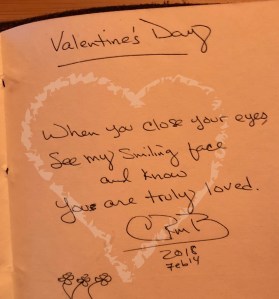 Valentine's Day
When you close your eyes
See my smiling face
and know
You are truly loved.
2018
Feb 14